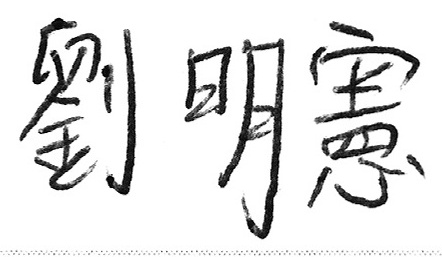 劉明憲